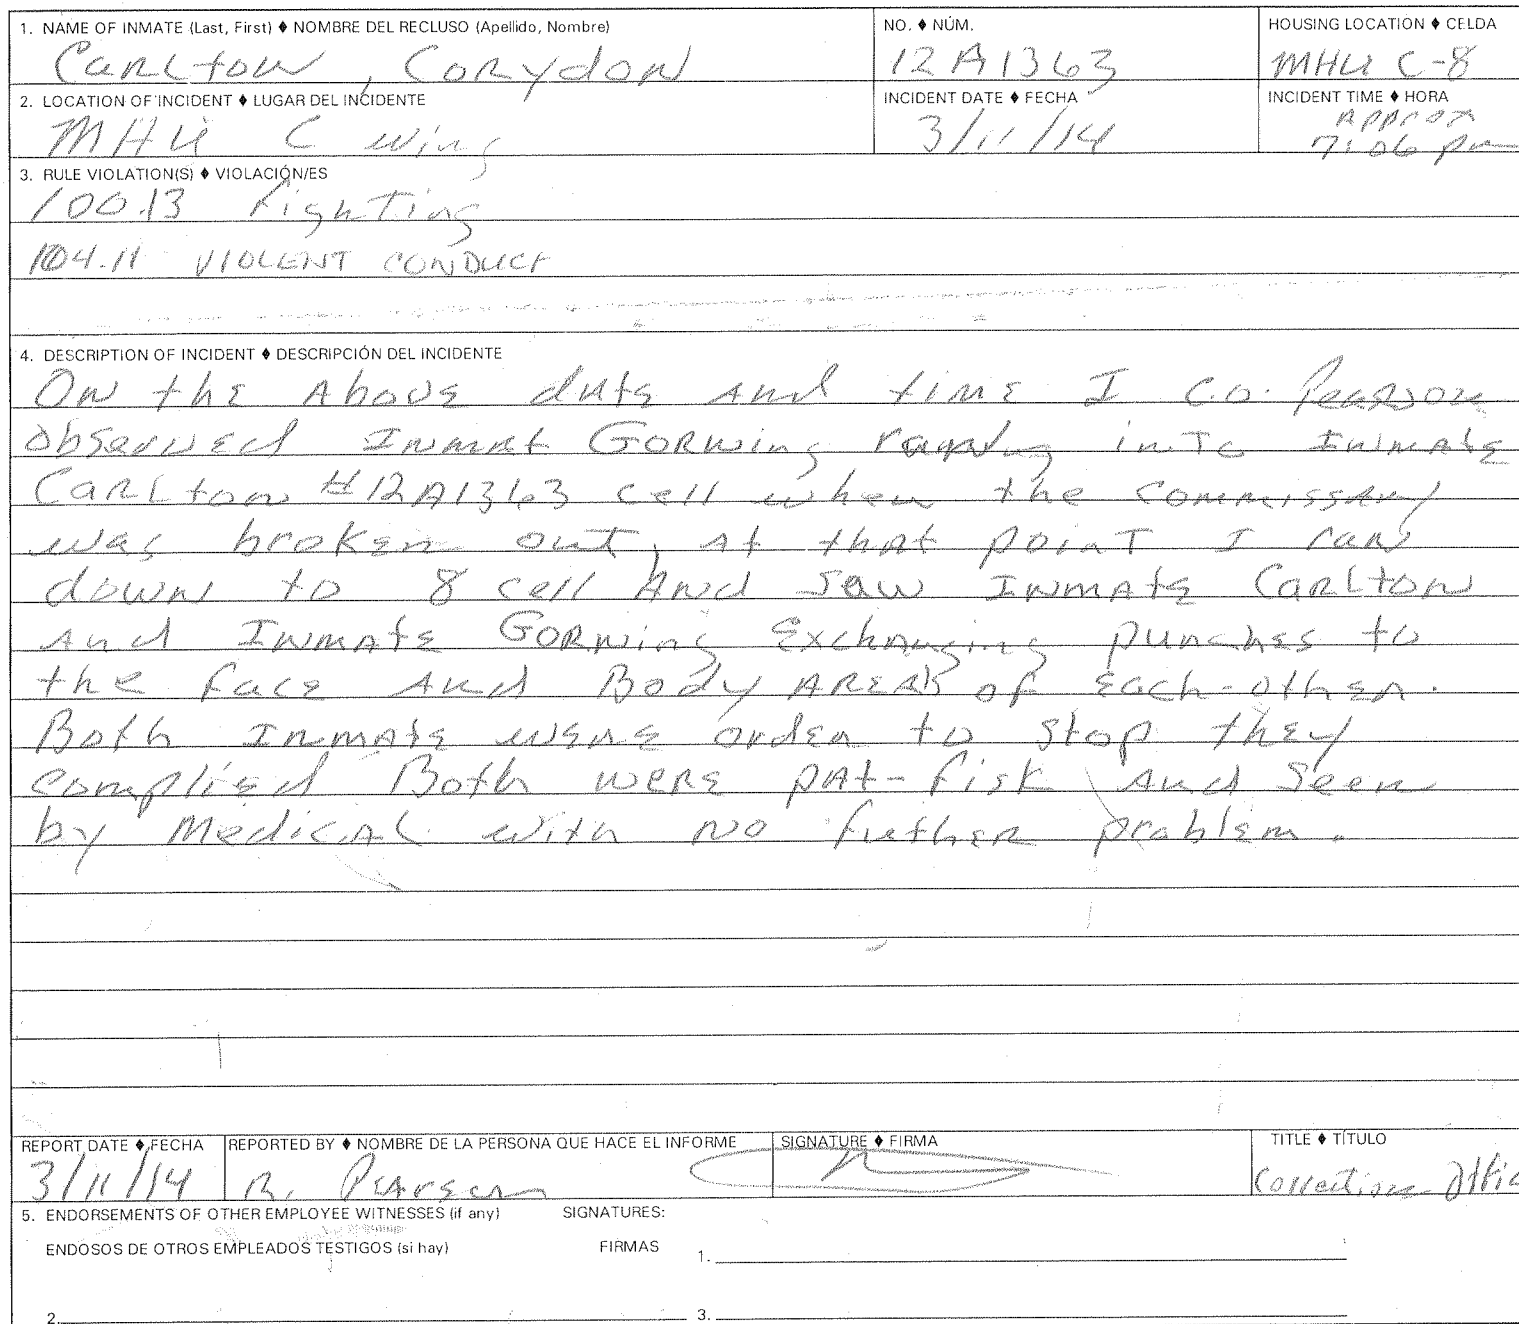 1. NAME OF INMATE (Last, First) ♦ NOMBRE DEL RECLUSO (Apellido, Nombre) NO. ♦ NÚM. HOUSING LOCATION ♦ CELDA
Carlton, Corydon 12A1363 MHU C-8
2. LOCATION OF INCIDENT ♦ LUGAR DEL INCIDENTE INCIDENT DATE ♦ FECHA INCIDENT TIME ♦ HORA
MHU C wing 3/11/14 approx 7:06 pm
3. RULE VIOLATION(S) ♦ VIOLACIÓN/ES
100.13 Fighting
104.11 VIOLENT CONDUCT
4. DESCRIPTION OF INCIDENT ♦ DESCRIPCIÓN DEL INCIDENTE
On the Above date and time I C.O. Pearson
observed Inmat Gorning into Inmate
Carlton #12A1363 cell when the commissary
was broken out, at that point I ran
down to 8 cell And saw Inmate Carlton
and Inmate Gorning Exchanging punches to
the face and Body AREAS of Each-other.
Both Inmate were order to stop they
complied Both were pat-fisk and seen
by Medical with no futher problem.
REPORT DATE ♦ FECHA REPORTED BY ♦ NOMBRE DE LA PERSONA QUE HACE EL INFORME SIGNATURE ♦ FIRMA TITLE ♦ TÍTULO
3/11/14 R. Pearson Correction Offic
5. ENDORSEMENTS OF OTHER EMPLOYEE WITNESSES (if any) SIGNATURES:
ENDOSOS DE OTROS EMPLEADOS TESTIGOS (si hay) FIRMAS 1.
2. 3.